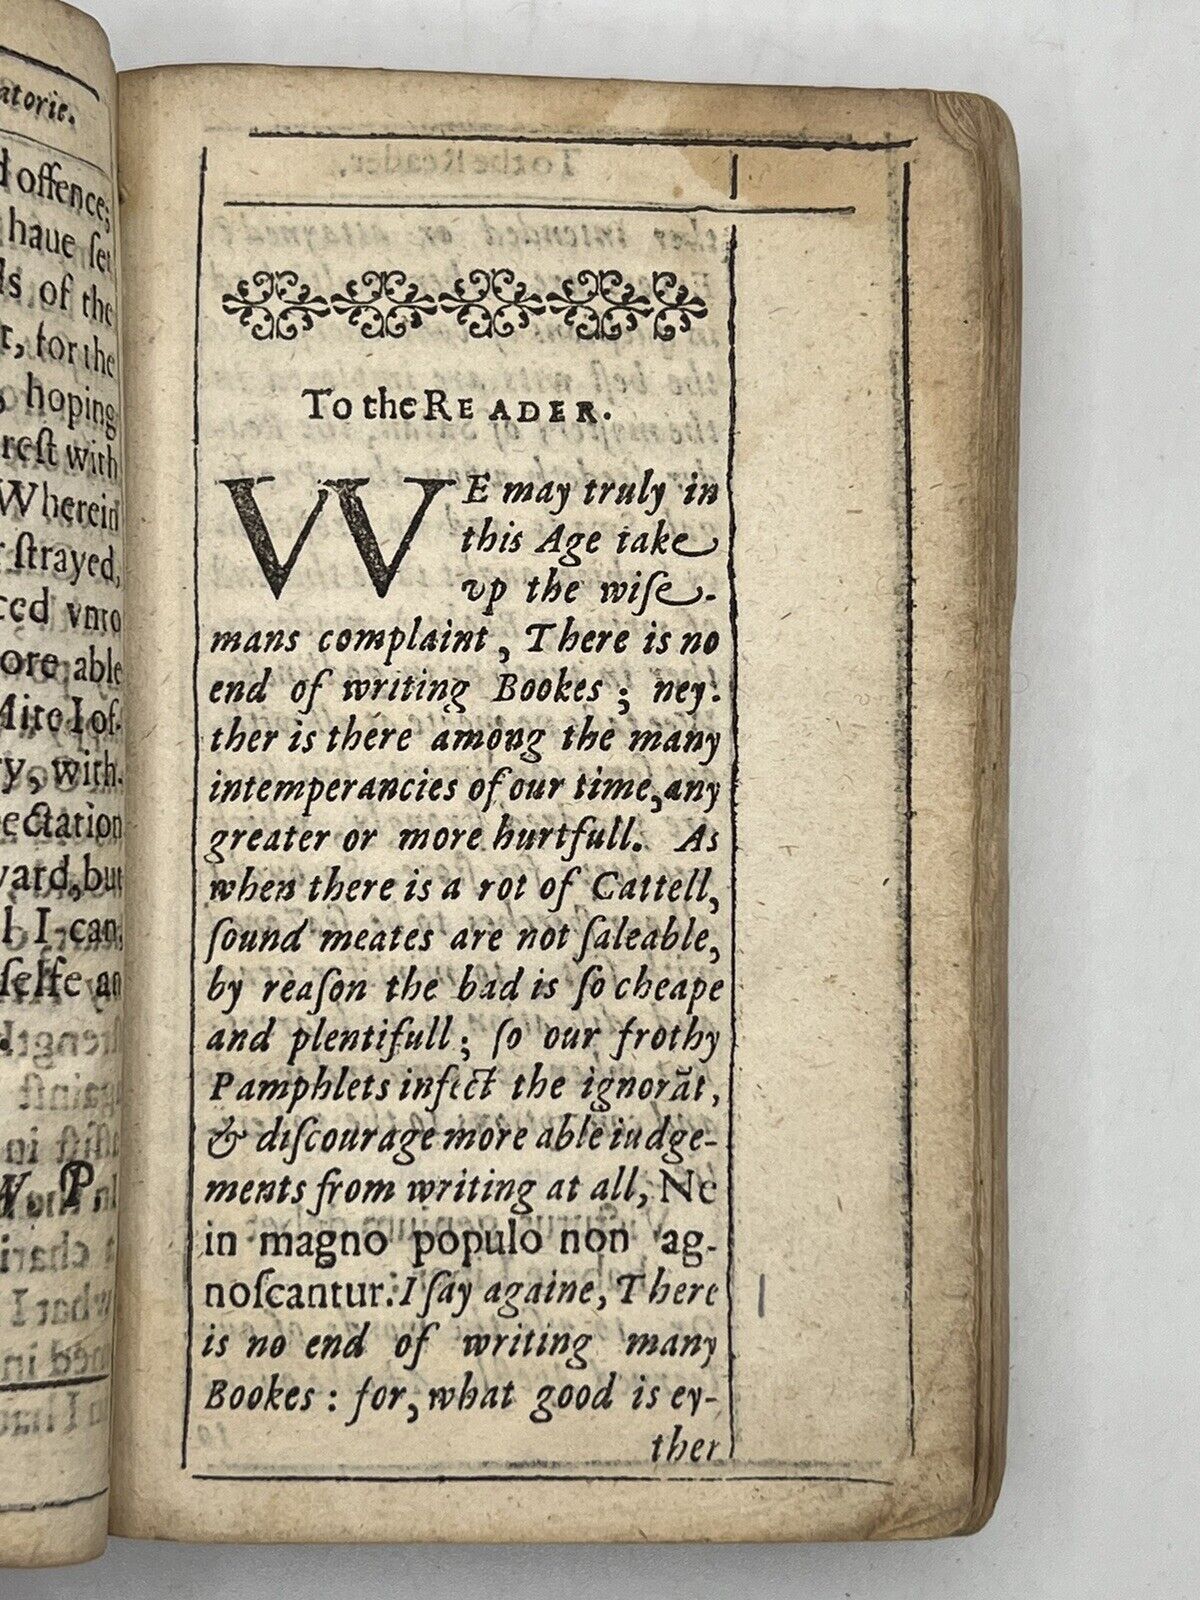 atorie.
offence;
haue ſet
of the
for the
hoping
reſt with
Wherein
ſtrayed,
vnto
ore able
Mite I of-
with-
ectation
ward, but
I can,
ſelfe an
W. P.
To the READER.
WE may truly in
this Age take
vp the wiſe-
mans complaint, There is no
end of writing Bookes; ney-
ther is there among the many
intemperancies of our time, any
greater or more hurtfull. As
when there is a rot of Cattell,
ſound meates are not ſaleable,
by reaſon the bad is ſo cheape
and plentifull; ſo our frothy
Pamphlets infect the ignorãt,
& diſcourage more able iudge-
ments from writing at all, Ne
in magno populo non ag-
noſcantur. I ſay againe, There
is no end of writing many
Bookes: for, what good is ey-
ther